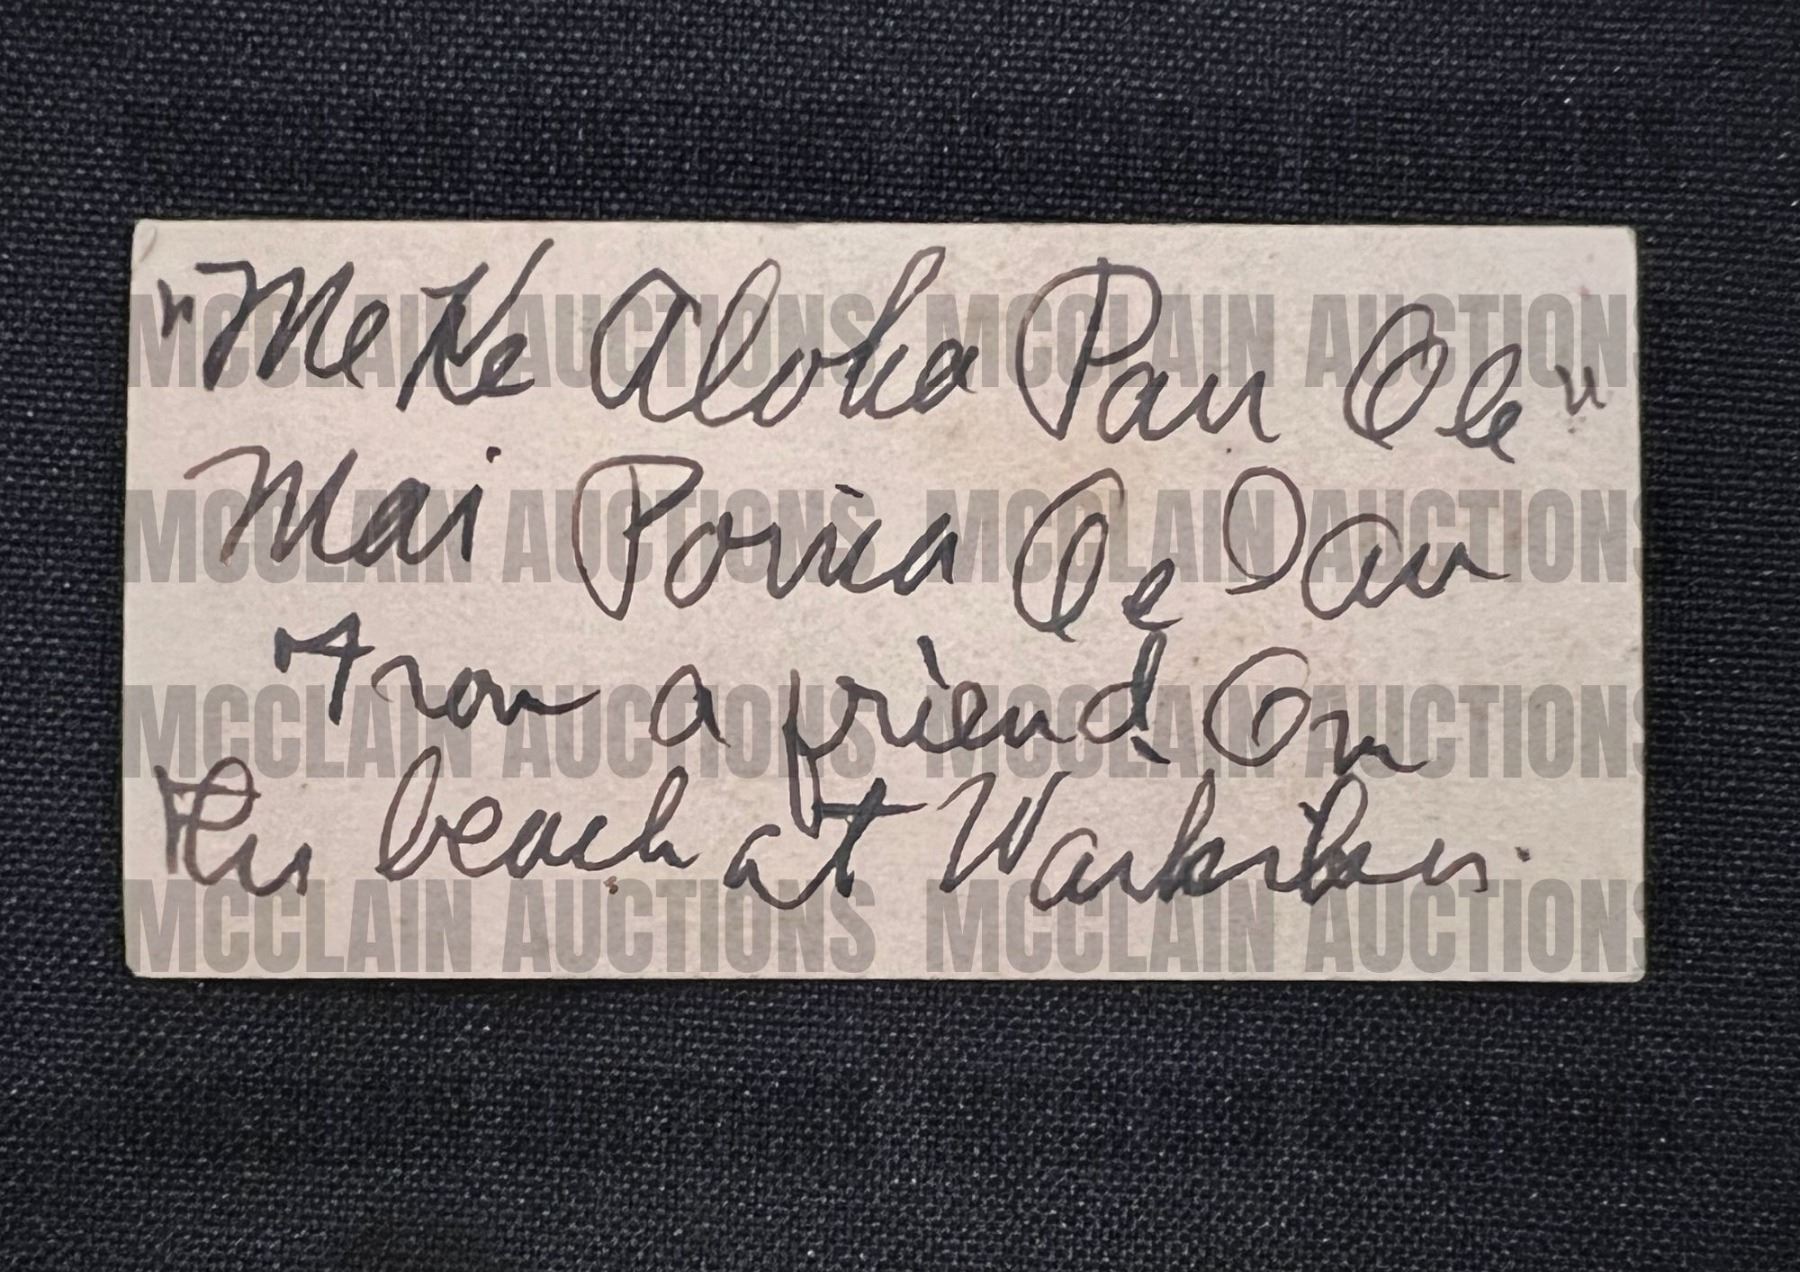 "Me Ke Aloha Pau Ole"
Mai Poina Oe Iau
From a friend On
the beach at Waikiki
MCCLAIN AUCTIONS MCCLAIN AUCTIONS
MCCLAIN AUCTIONS MCCLAIN AUCTIONS
MCCLAIN AUCTIONS MCCLAIN AUCTIONS
MCCLAIN AUCTIONS MCCLAIN AUCTIONS